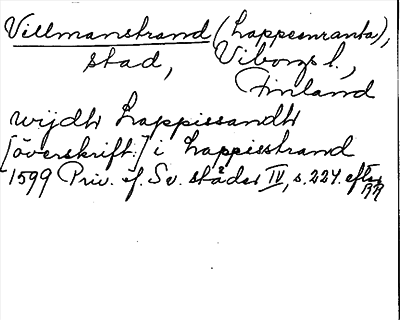 Villmanstrand (Lappeenranta),
stad, Viborgs l.,
Finland
wijdh Lappissandh
[överskrift:] i Lappisstrand
1599 Priv. f. Sv. städer IV, s. 224. efter
RR